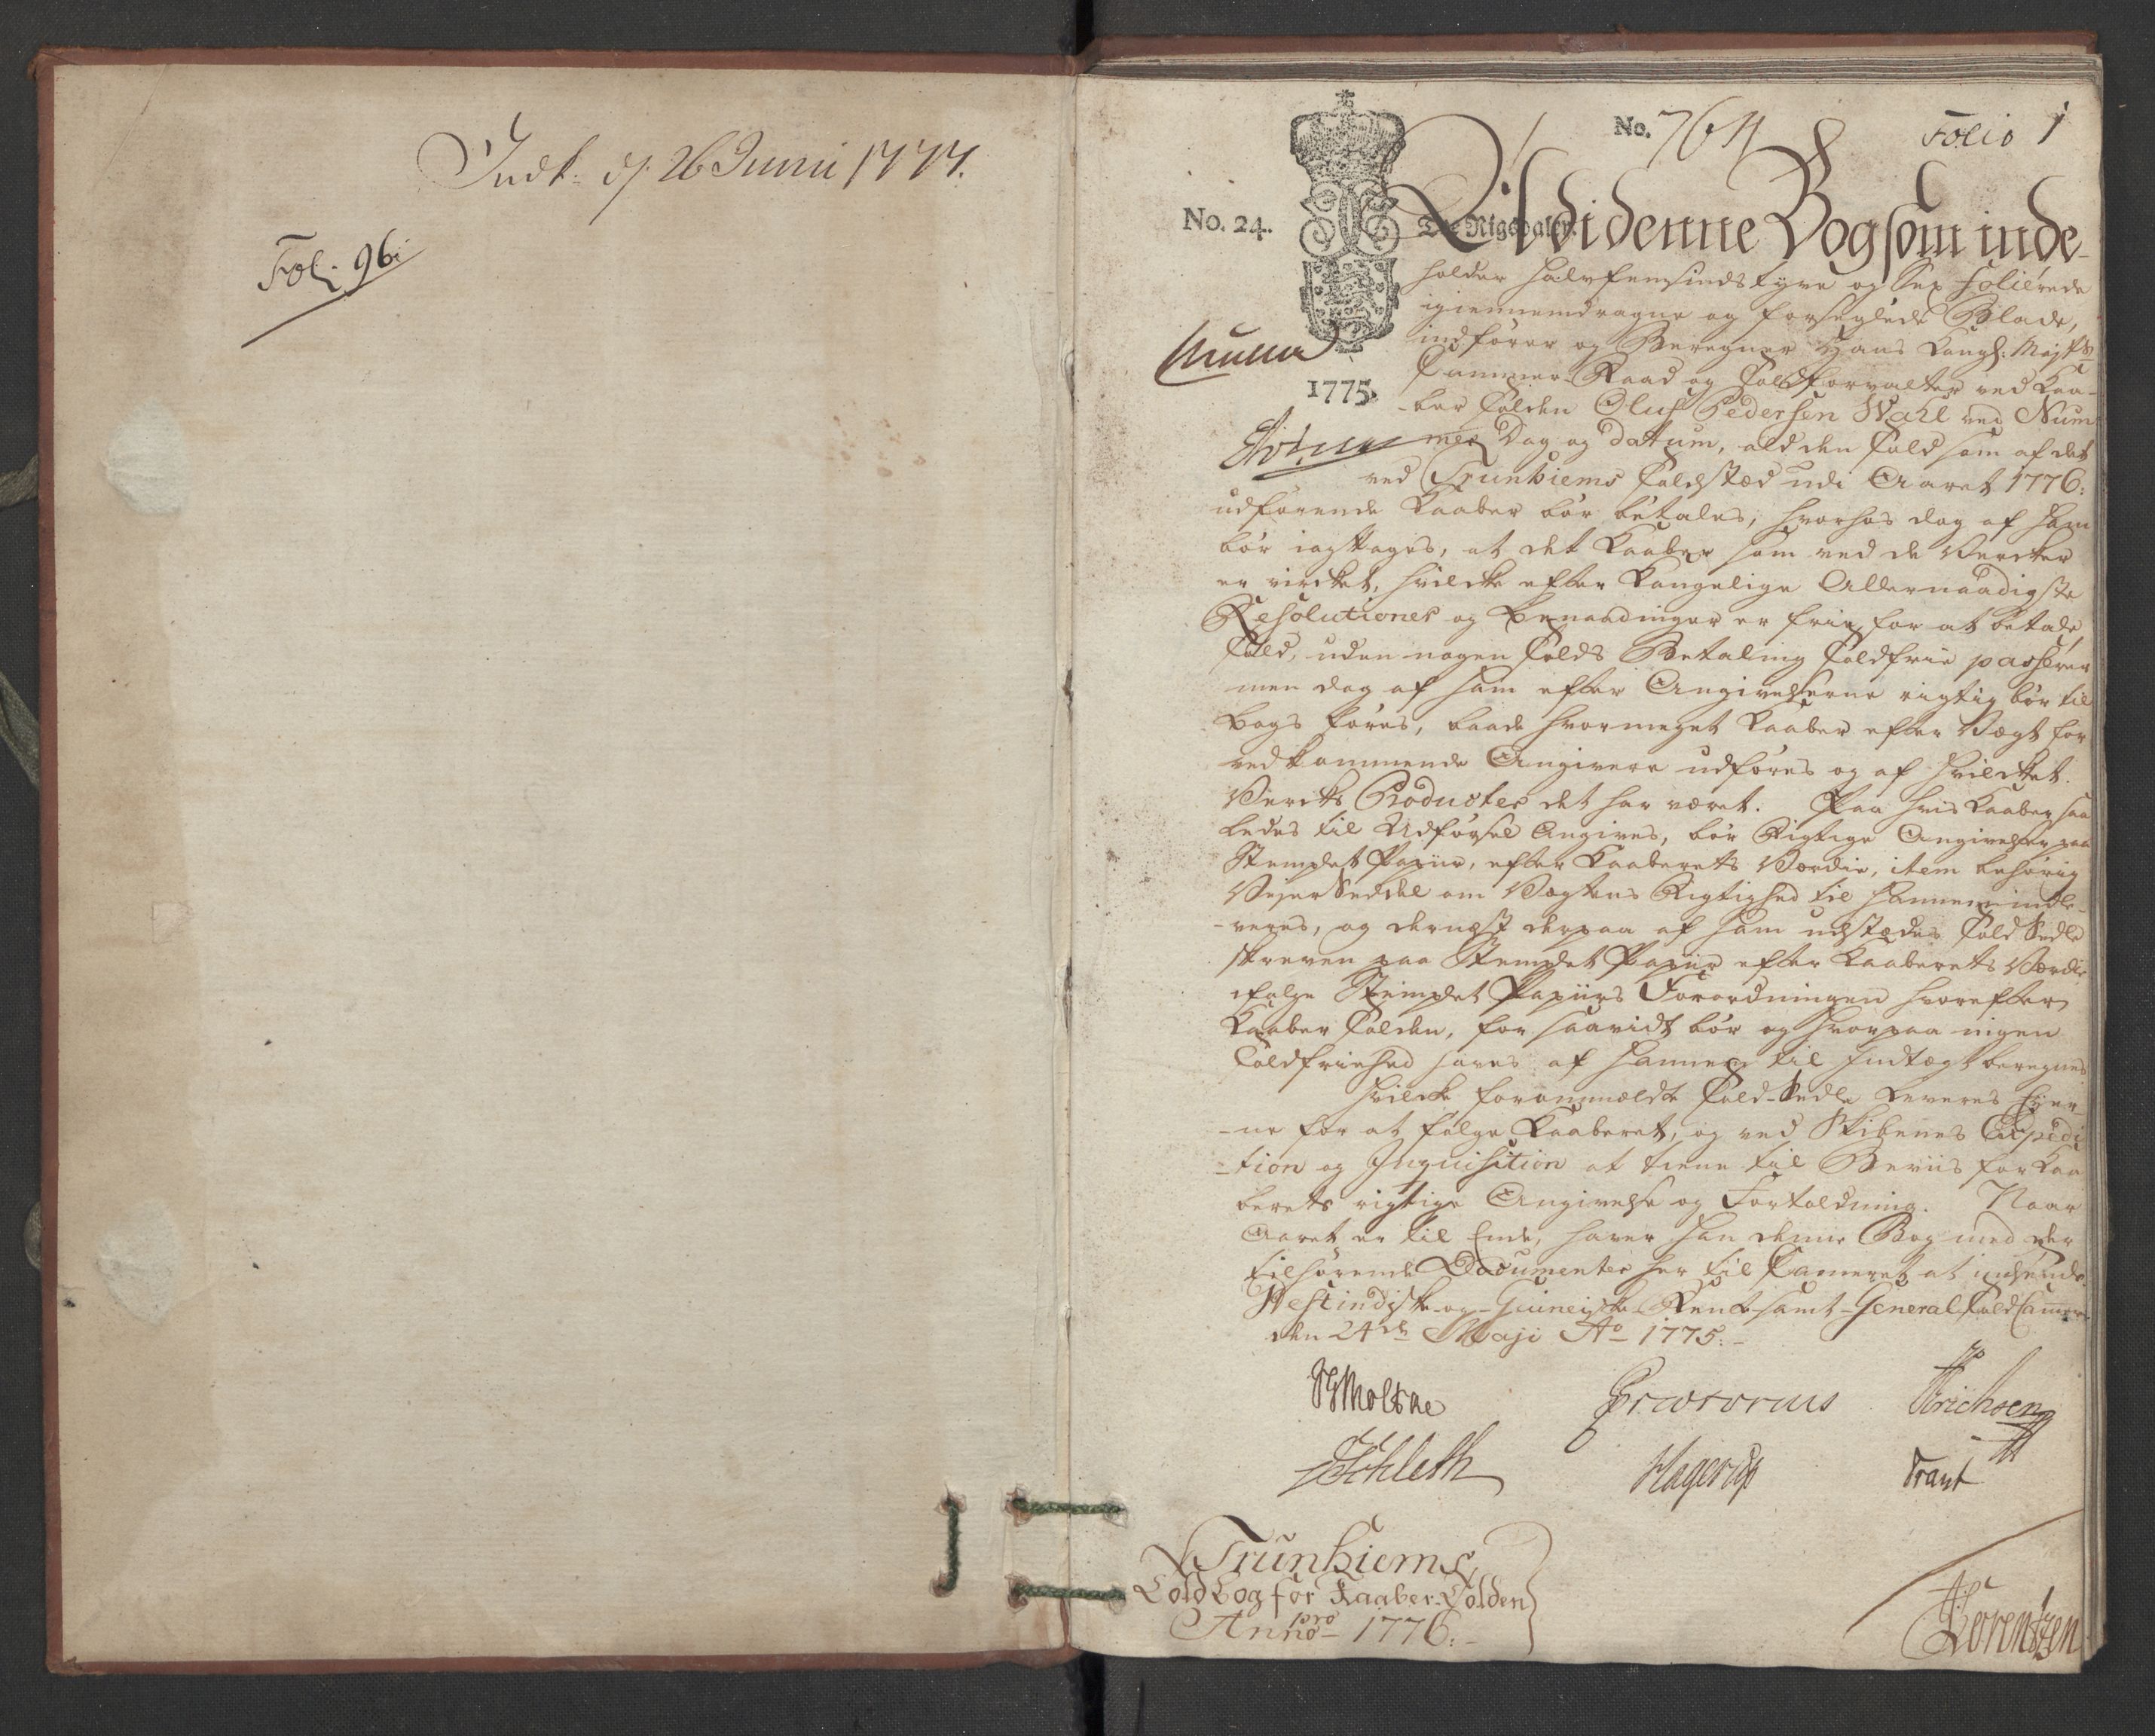 Indk: d. 26 Junii 1777.
Fol: 96:
No. 764
Folio 1
No. 24.
Tre Rigsdaler.
1775.
Udi denne Bog som inde-
holder halvfemsindstyve og Sex Folierede
igiennemdragne og forseglede Blade,
indfører og Beregner Hans Kongl: Mayts
Cammer-Raad og Toldforvalter ved Kaa-
ber Tolden Oluf Pedersen Wahl ved Num-
mer Dag og datum, ald den Told som af det
ved Trunhiems Toldsted udi Aaret 1776:
udførende Kaaber bør betales, hvorhos dog af ham
bør iagttages, at det Kaaber som ved de Vercker
er virket, hvilcke efter Kongelige Allernaadigste
Resolutioner og benaadinger er frie for at betale
Told, uden nogen Tolds Betaling Toldfrie passerer
men dog af ham efter Angivelserne rigtig bør til
Bogs føres, baade hvormeget Kaaber efter Vægt for
vedkommende Angivere udføres og af hvilcket
Vercks Producter det har været. Paa hvis Kaaber saa
ledes til Udførsel Angives, bør Rigtige Angivelser paa
Stemplet Papiir, efter Kaaberets Værdie, item behørig
Vejer Seddel om Vægtens Rigtighed til hannem indle-
veres, og dernæst derpaa af ham udstædes Told Sedle
skreven paa Stemplet Papiir efter Kaaberets Værdie
ifølge Stemplet Papiirs Forordningen hvorefter
Kaaber Tolden, for saavidt bør og hvorpaa ingen
Toldfriehed haves af hannem til Indtægt beregnes
Hvilcke forommeldte Told-Sedle leveres Eyer-
-ne for at følge Kaaberet, og ved Skibenes Expedi
-tion og Inquisition at tiene til Beviis for Kaa
berets rigtige Angivelse og Fortoldning. Naar
Aaret er til Ende, haver han denne Bog med der
tilhørende Documenter her til Cameret at indsende.
Westindiske-og-Guineiske Rente-samt-General Told Cammer
den 24de Maji Ao 1775:-
Moltke
Erichsen
Schleth
Hagerup
Trant
Trunhiems
Told Bog for Kaaber-Tolden
pro
Anno 1776:-
Lorentzen